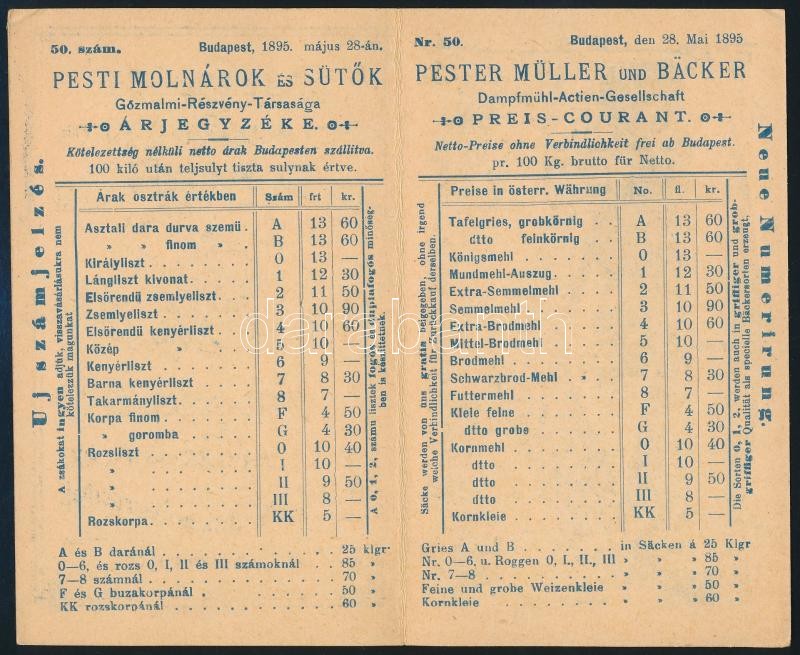 50. szám. Budapest, 1895. május 28-án.
PESTI MOLNÁROK ÉS SÜTŐK
Gőzmalmi-Részvény-Társasága
ÁRJEGYZÉKE.
Kötelezettség nélküli netto árak Budapesten szállitva.
100 kiló után teljsulyt tiszta sulynak értve.
Uj számjelzés.
A zsákokat ingyen adjuk, visszavásárlásukra nem
kötelezzük magunkat
Árak osztrák értékben Szám frt kr.
Asztali dara durva szemü . A 13 60
» » finom » . B 13 60
Királyliszt . . . . . 0 13 —
Lángliszt kivonat . . . 1 12 30
Elsőrendü zsemlyeliszt . . 2 11 50
Zsemlyeliszt . . . . 3 10 90
Elsőrendü kenyérliszt . . 4 10 60
Közép » . . 5 10 —
Kenyérliszt . . . . 6 9 —
Barna kenyérliszt . . . 7 8 30
Takarmányliszt . . . 8 7 —
Korpa finom . . . . F 4 50
» goromba . . . G 4 30
Rozsliszt . . . . . 0 10 40
» . . . . . I 10 —
» . . . . . II 9 50
» . . . . . III 8 —
Rozskorpa . . . . . KK 5 —
A 0, 1, 2, számu lisztek fogós és duplafogós minőség-
ben is készíttetnek.
A és B daránál . . . . . . 25 klgr.
0—6, és rozs 0, I, II és III számoknál . 85 »
7—8 számnál . . . . . . 70 »
F és G buzakorpánál . . . . . 50 »
KK rozskorpánál . . . . . . 60 »
Nr. 50. Budapest, den 28. Mai 1895
PESTER MÜLLER UND BÄCKER
Dampfmühl-Actien-Gesellschaft
PREIS-COURANT.
Netto-Preise ohne Verbindlichkeit frei ab Budapest.
pr. 100 Kg. brutto für Netto.
Säcke werden von uns gratis beigegeben, ohne irgend
welche Verbindlichkeit für Zurückkauf derselben.
Preise in österr. Währung No. fl. kr.
Tafelgries, grobkörnig . . A 13 60
dtto feinkörnig . . B 13 60
Königsmehl . . . . 0 13 —
Mundmehl-Auszug . . . 1 12 30
Extra-Semmelmehl . . . 2 11 50
Semmelmehl . . . . 3 10 90
Extra-Brodmehl . . . 4 10 60
Mittel-Brodmehl . . . 5 10 —
Brodmehl . . . . 6 9 —
Schwarzbrod-Mehl . . . 7 8 30
Futtermehl . . . . 8 7 —
Kleie feine . . . . F 4 50
dtto grobe . . . . G 4 30
Kornmehl . . . . 0 10 40
dtto . . . . I 10 —
dtto . . . . II 9 50
dtto . . . . III 8 —
Kornkleie . . . . KK 5 —
Die Sorten 0, 1, 2, werden auch in griffiger und grob-
griffiger Qualität als specielle Bäckersorten erzeugt.
Neue Numerirung.
Gries A und B . . . . in Säcken á 25 Klgr
Nr. 0—6, u. Roggen 0, I., II., III » » » 85 »
Nr. 7—8 . . . . . » » » 70 »
Feine und grobe Weizenkleie . » » » 50 »
Kornkleie . . . . . » » » 60 »
darabanth